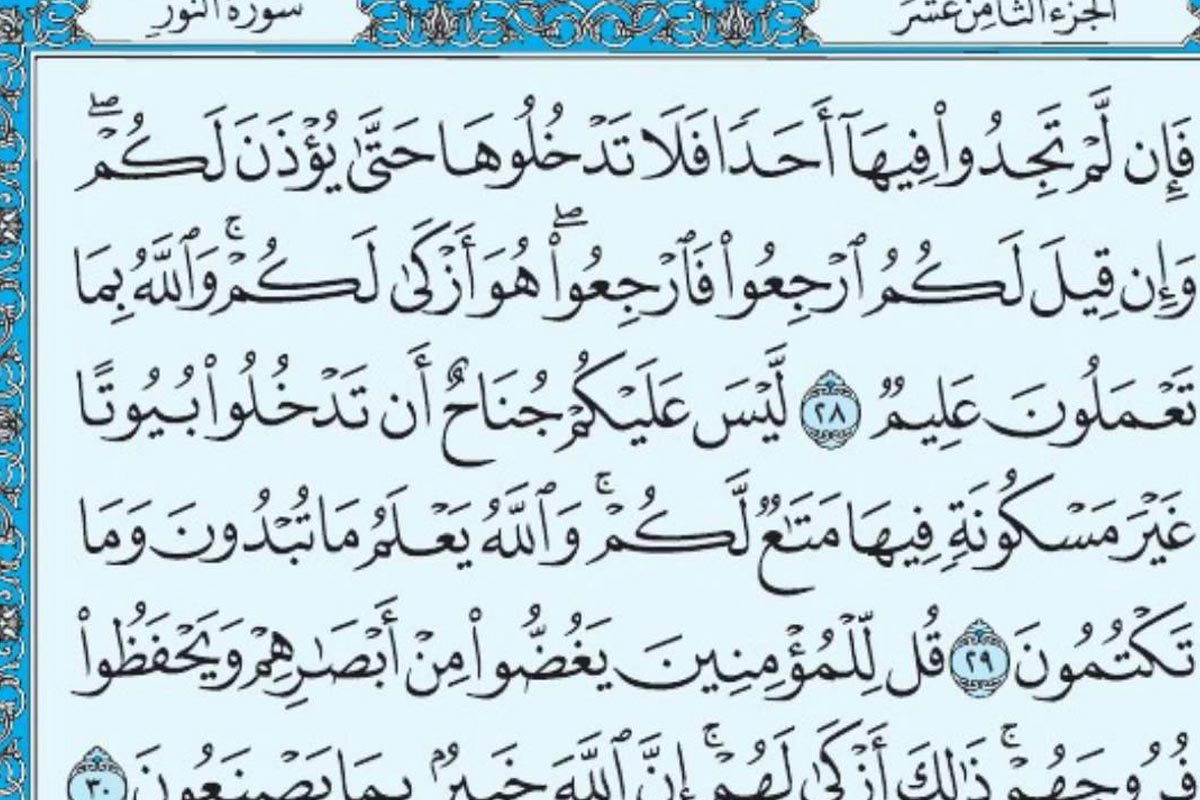 سورة النور الجزء الثامن عشر
فَإِن لَّمْ تَجِدُوا۟ فِيهَآ أَحَدًا فَلَا تَدْخُلُوهَا حَتَّىٰ يُؤْذَنَ لَكُمْ ۖ
وَإِن قِيلَ لَكُمُ ٱرْجِعُوا۟ فَٱرْجِعُوا۟ ۖ هُوَ أَزْكَىٰ لَكُمْ ۚ وَٱللَّهُ بِمَا
تَعْمَلُونَ عَلِيمٌ ٢٨ لَّيْسَ عَلَيْكُمْ جُنَاحٌ أَن تَدْخُلُوا۟ بُيُوتًا
غَيْرَ مَسْكُونَةٍ فِيهَا مَتَـٰعٌ لَّكُمْ ۚ وَٱللَّهُ يَعْلَمُ مَا تُبْدُونَ وَمَا
تَكْتُمُونَ ٢٩ قُل لِّلْمُؤْمِنِينَ يَغُضُّوا۟ مِنْ أَبْصَـٰرِهِمْ وَيَحْفَظُوا۟
فُرُوجَهُمْ ۚ ذَٰلِكَ أَزْكَىٰ لَهُمْ ۚ إِنَّ ٱللَّهَ خَبِيرٌۢ بِمَا يَصْنَعُونَ ٣٠